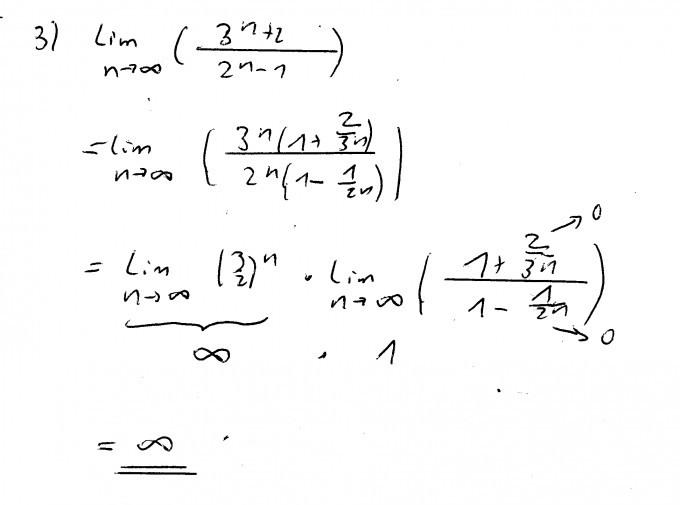 3) Lim n→∞ ( (3ⁿ+2) / (2ⁿ-1) )
= lim n→∞ ( 3ⁿ(1+ 2/3ⁿ) / 2ⁿ(1- 1/2ⁿ) )
= Lim n→∞ (3/2)ⁿ · Lim n→∞ ( (1+ 2/3ⁿ → 0) / (1- 1/2ⁿ → 0) )
∞ · 1
= ∞